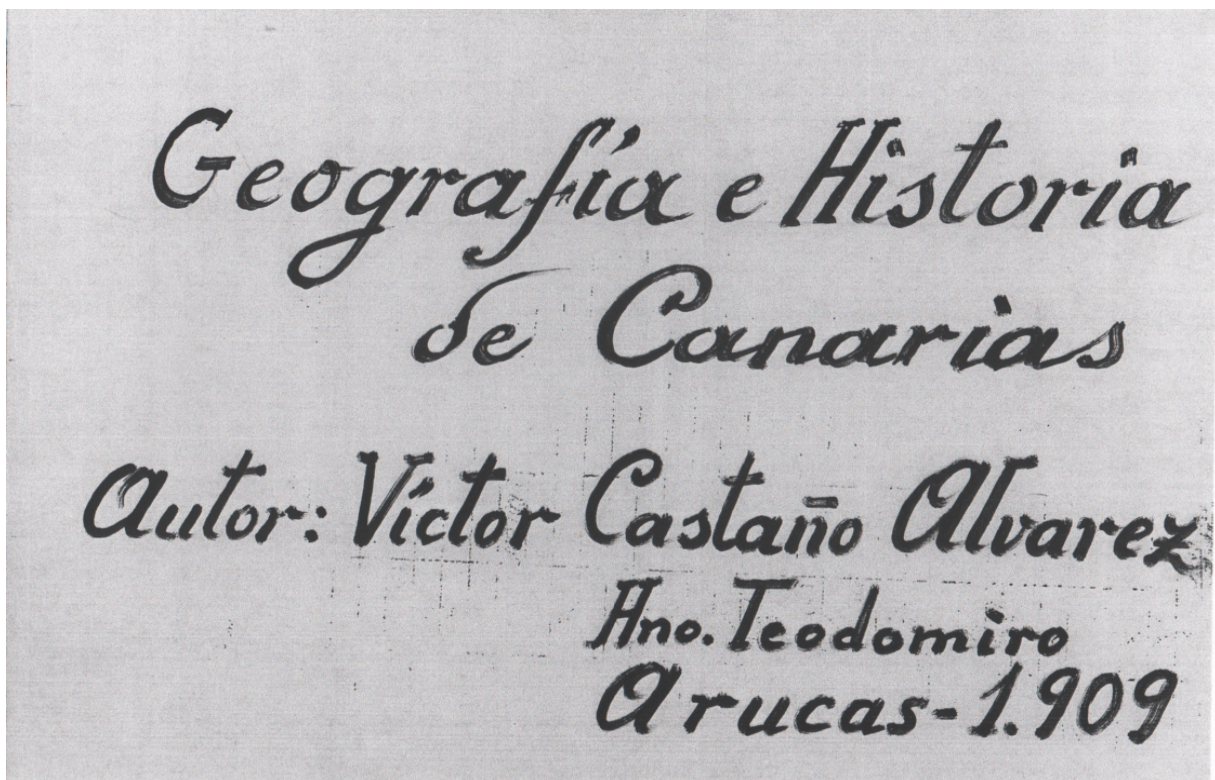 Geografía e Historia
de Canarias
Autor: Víctor Castaño Alvarez
Hno. Teodomiro
Arucas-1.909